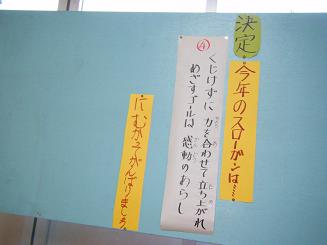 決定
今年のスローガンは……
④
くじけずに 力を合わせて立ち上がれ
めざすゴールは 感動のあらし
にむかってがんばりましょう